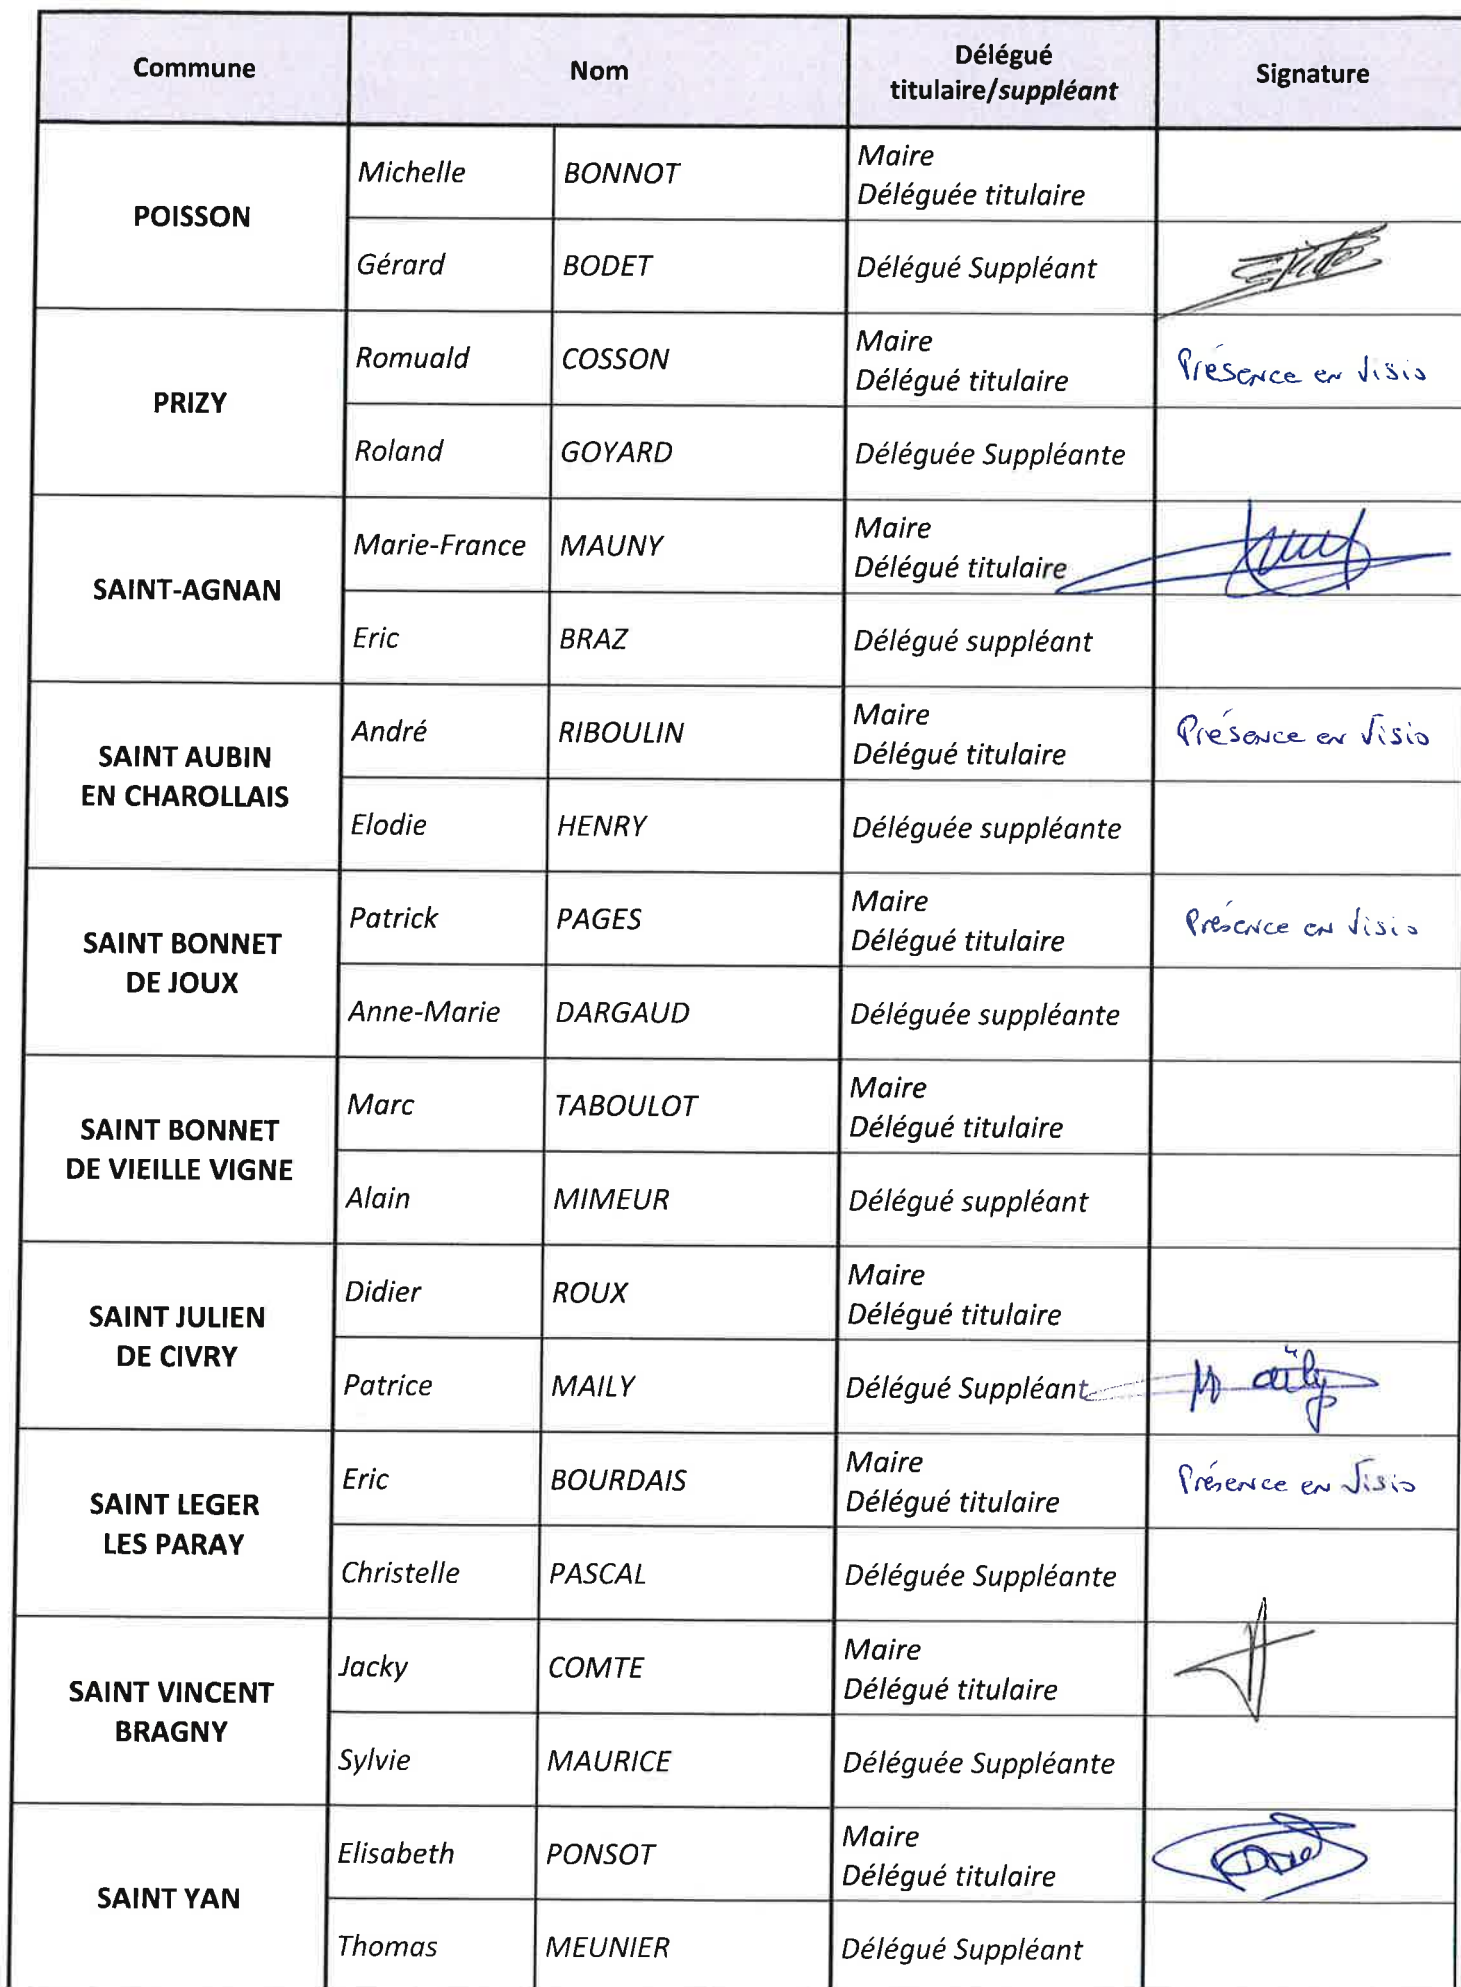 Commune Nom Délégué titulaire/suppléant Signature
POISSON
Michelle BONNOT Maire
Déléguée titulaire
Gérard BODET Délégué Suppléant
PRIZY
Romuald COSSON Maire
Délégué titulaire Présence en Visio
Roland GOYARD Déléguée Suppléante
SAINT-AGNAN
Marie-France MAUNY Maire
Délégué titulaire
Eric BRAZ Délégué suppléant
SAINT AUBIN
EN CHAROLLAIS
André RIBOULIN Maire
Délégué titulaire Présence en Visio
Elodie HENRY Déléguée suppléante
SAINT BONNET
DE JOUX
Patrick PAGES Maire
Délégué titulaire Présence en Visio
Anne-Marie DARGAUD Déléguée suppléante
SAINT BONNET
DE VIEILLE VIGNE
Marc TABOULOT Maire
Délégué titulaire
Alain MIMEUR Délégué suppléant
SAINT JULIEN
DE CIVRY
Didier ROUX Maire
Délégué titulaire
Patrice MAILY Délégué Suppléant
SAINT LEGER
LES PARAY
Eric BOURDAIS Maire
Délégué titulaire Présence en Visio
Christelle PASCAL Déléguée Suppléante
SAINT VINCENT
BRAGNY
Jacky COMTE Maire
Délégué titulaire
Sylvie MAURICE Déléguée Suppléante
SAINT YAN
Elisabeth PONSOT Maire
Délégué titulaire
Thomas MEUNIER Délégué Suppléant